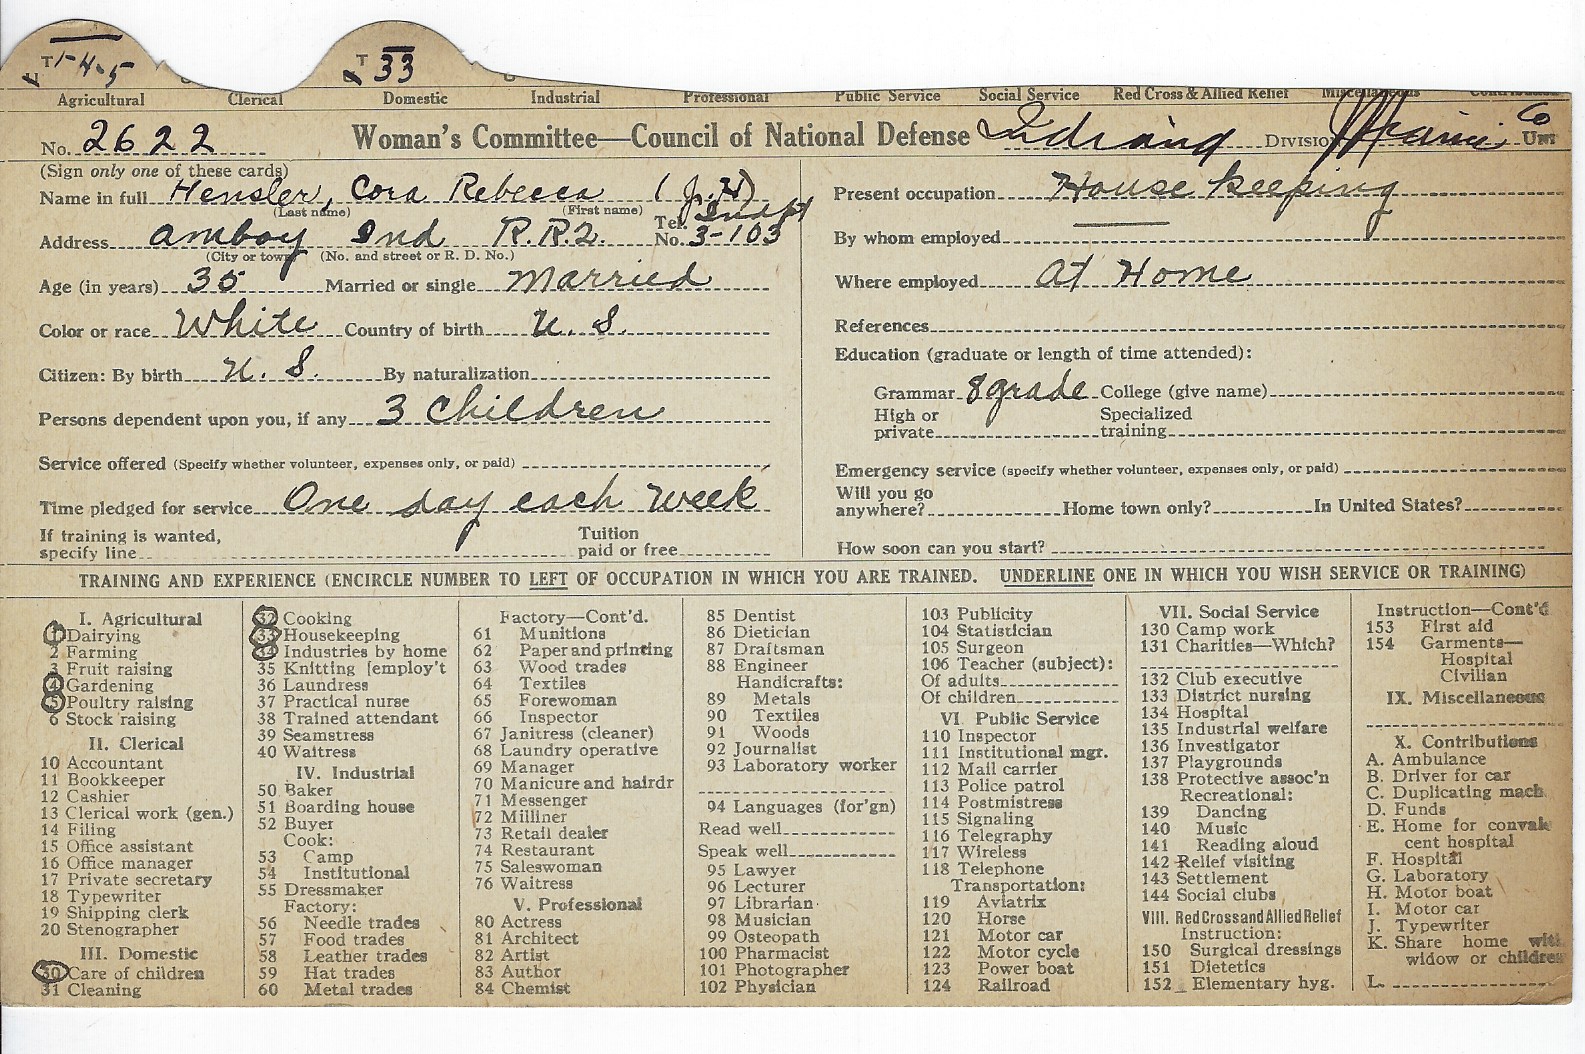 T 1-4-5
T 33
Agricultural Clerical Domestic Industrial Professional Public Service Social Service Red Cross & Allied Relief Miscellaneous
No. 2622 Woman's Committee—Council of National Defense Indiana Division Miami Co Unit
(Sign only one of these cards)
Name in full Hensler, Cora Rebecca (J. H)
(Last name) (First name)
Address Amboy Ind R.R.2. Tel. No. 3-103
(City or town) (No. and street or R. D. No.)
Age (in years) 35 Married or single Married
Color or race White Country of birth U. S.
Citizen: By birth U. S. By naturalization
Persons dependent upon you, if any 3 Children
Service offered (Specify whether volunteer, expenses only, or paid)
Time pledged for service One day each week
If training is wanted, specify line Tuition paid or free
Present occupation House keeping
By whom employed
Where employed At Home
References
Education (graduate or length of time attended):
Grammar 8 grade College (give name)
High or private Specialized training
Emergency service (specify whether volunteer, expenses only, or paid)
Will you go anywhere? Home town only? In United States?
How soon can you start?
TRAINING AND EXPERIENCE (ENCIRCLE NUMBER TO LEFT OF OCCUPATION IN WHICH YOU ARE TRAINED. UNDERLINE ONE IN WHICH YOU WISH SERVICE OR TRAINING)
I. Agricultural
1 Dairying
2 Farming
3 Fruit raising
4 Gardening
5 Poultry raising
6 Stock raising
II. Clerical
10 Accountant
11 Bookkeeper
12 Cashier
13 Clerical work (gen.)
14 Filing
15 Office assistant
16 Office manager
17 Private secretary
18 Typewriter
19 Shipping clerk
20 Stenographer
III. Domestic
30 Care of children
31 Cleaning
32 Cooking
33 Housekeeping
34 Industries by home
35 Knitting [employ't
36 Laundress
37 Practical nurse
38 Trained attendant
39 Seamstress
40 Waitress
IV. Industrial
50 Baker
51 Boarding house
52 Buyer
Cook:
53 Camp
54 Institutional
55 Dressmaker
Factory:
56 Needle trades
57 Food trades
58 Leather trades
59 Hat trades
60 Metal trades
Factory—Cont'd.
61 Munitions
62 Paper and printing
63 Wood trades
64 Textiles
65 Forewoman
66 Inspector
67 Janitress (cleaner)
68 Laundry operative
69 Manager
70 Manicure and hairdr
71 Messenger
72 Milliner
73 Retail dealer
74 Restaurant
75 Saleswoman
76 Waitress
V. Professional
80 Actress
81 Architect
82 Artist
83 Author
84 Chemist
85 Dentist
86 Dietician
87 Draftsman
88 Engineer
Handicrafts:
89 Metals
90 Textiles
91 Woods
92 Journalist
93 Laboratory worker
94 Languages (for'gn)
Read well
Speak well
95 Lawyer
96 Lecturer
97 Librarian
98 Musician
99 Osteopath
100 Pharmacist
101 Photographer
102 Physician
103 Publicity
104 Statistician
105 Surgeon
106 Teacher (subject):
Of adults
Of children
VI. Public Service
110 Inspector
111 Institutional mgr.
112 Mail carrier
113 Police patrol
114 Postmistress
115 Signaling
116 Telegraphy
117 Wireless
118 Telephone
Transportation:
119 Aviatrix
120 Horse
121 Motor car
122 Motor cycle
123 Power boat
124 Railroad
VII. Social Service
130 Camp work
131 Charities—Which?
132 Club executive
133 District nursing
134 Hospital
135 Industrial welfare
136 Investigator
137 Playgrounds
138 Protective assoc'n
Recreational:
139 Dancing
140 Music
141 Reading aloud
142 Relief visiting
143 Settlement
144 Social clubs
VIII. Red Cross and Allied Relief
Instruction:
150 Surgical dressings
151 Dietetics
152 Elementary hyg.
Instruction—Cont'd
153 First aid
154 Garments—
Hospital
Civilian
IX. Miscellaneous
X. Contributions
A. Ambulance
B. Driver for car
C. Duplicating mach.
D. Funds
E. Home for convales
cent hospital
F. Hospital
G. Laboratory
H. Motor boat
I. Motor car
J. Typewriter
K. Share home with
widow or children
L.